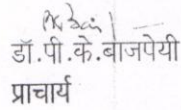 डॉ.पी.के.बाजपेयी
प्राचार्य